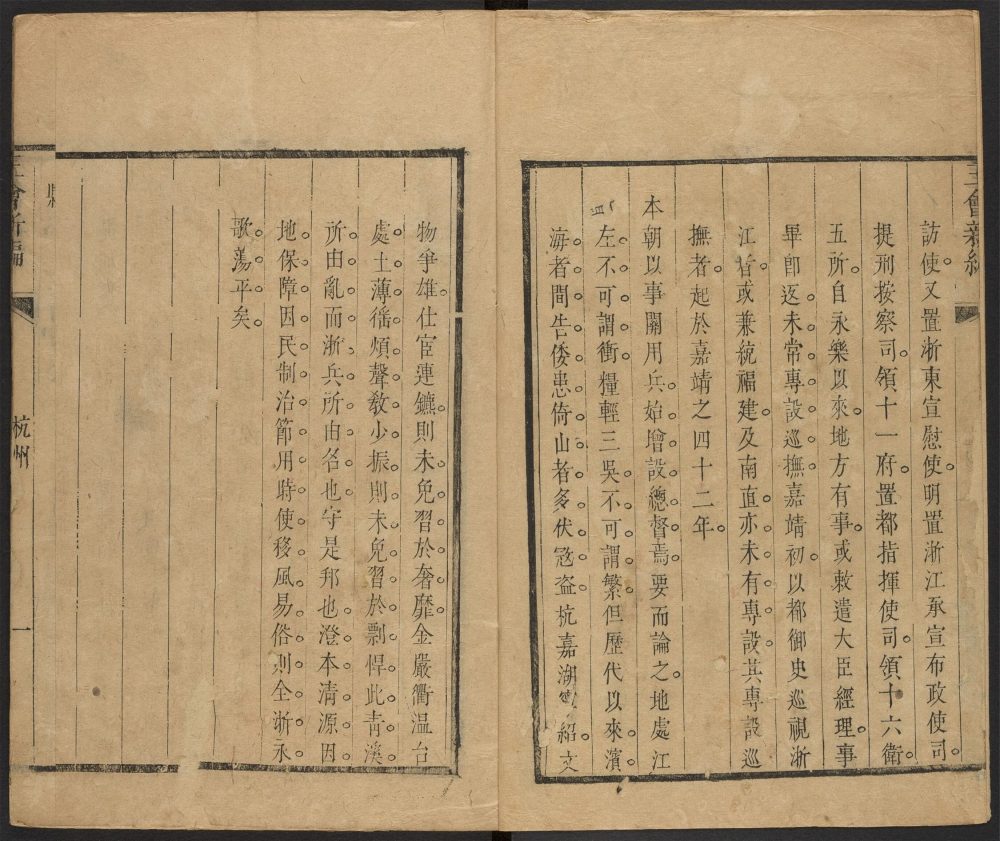 王會新編
訪使。又置浙東宣慰使。明置浙江承宣布政使司。
提刑按察司。領十一府。置都指揮使司。領十六衛。
五所。自永樂以來。地方有事。或敕遣大臣經理。事
畢卽返。未常專設巡撫。嘉靖初。以都御史巡視浙
江者。或兼統福建。及南直。亦未有專設。其專設巡
撫者。起於嘉靖之四十二年。
本朝以事關用兵。始增設總督焉。要而論之。地處江
左。不可謂衝。糧輕三吳。不可謂繁。但歷代以來。濱
海者間告倭患。倚山者多伏寇盜。杭嘉湖寧紹。文
物爭雄。仕宦連鑣。則未免習於奢靡。金嚴衢温台
處。土薄徭煩。聲敎少振。則未免習於剽悍。此靑溪
所由亂。而浙兵所由名也。守是邦也。澄本清源。因
地保障。因民制治。節用時使。移風易俗。則全浙永
歌蕩平矣。
王會新編
杭州
一